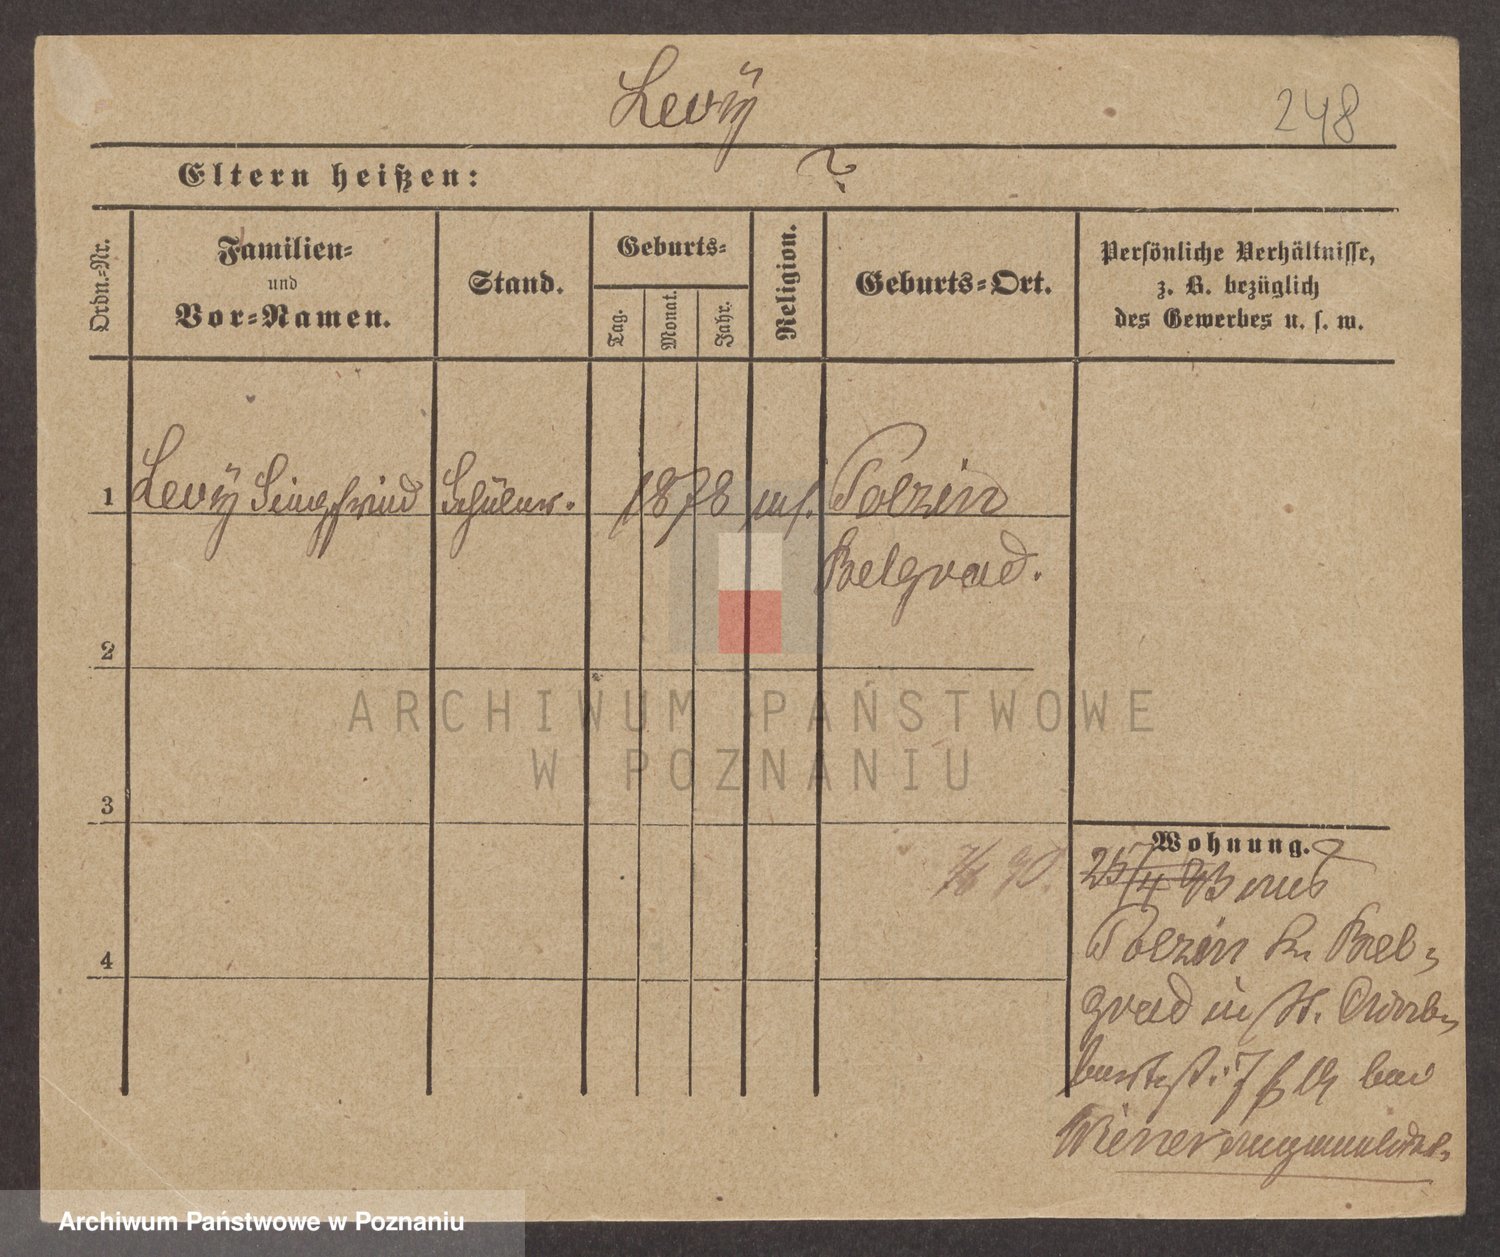 Levÿ
248
Eltern heißen:
?
Ordn.-Nr.
Familien-
und
Vor-Namen.
Stand.
Geburts-
Tag.
Monat.
Jahr.
Religion.
Geburts-Ort.
Persönliche Verhältnisse,
z. B. bezüglich
des Gewerbes u. s. w.
1
Levÿ Siegfried
Schüler.
1878
mos.
Polzin
Belgrad.
2
ARCHIWUM PAŃSTWOWE
W POZNANIU
3
Wohnung.
90.
25/4 93 aus
Polzin Kr. Bel-
4
grad in St.
bei
Wiener angemeldet.
Archiwum Państwowe w Poznaniu